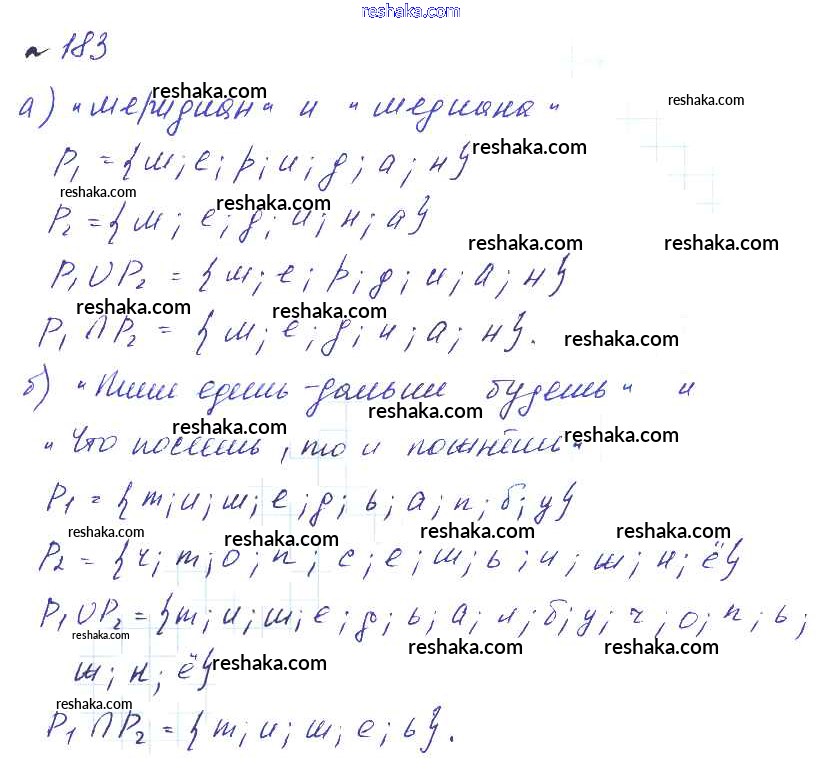 reshaka.com
№ 183
reshaka.com reshaka.com
а) "меридиан" и "медиана"
P₁ = {м; е; р; и; д; а; н} reshaka.com
reshaka.com reshaka.com
P₂ = {м; е; д; и; н; а}
reshaka.com reshaka.com
P₁ ∪ P₂ = {м; е; р; д; и; а; н}
reshaka.com reshaka.com
P₁ ∩ P₂ = {м; е; д; и; а; н}. reshaka.com
б) "Тише едешь - дальше будешь" и
reshaka.com reshaka.com reshaka.com
"Что посеешь, то и пожнёшь"
P₁ = {т; и; ш; е; д; ь; а; л; б; у}
reshaka.com reshaka.com reshaka.com reshaka.com
P₂ = {ч; т; о; п; с; е; ш; ь; и; ж; н; ё}
P₁ ∪ P₂ = {т; и; ш; е; д; ь; а; л; б; у; ч; о; п; ь;
reshaka.com reshaka.com reshaka.com
ж; н; ё} reshaka.com
reshaka.com reshaka.com
P₁ ∩ P₂ = {т; и; ш; е; ь}.